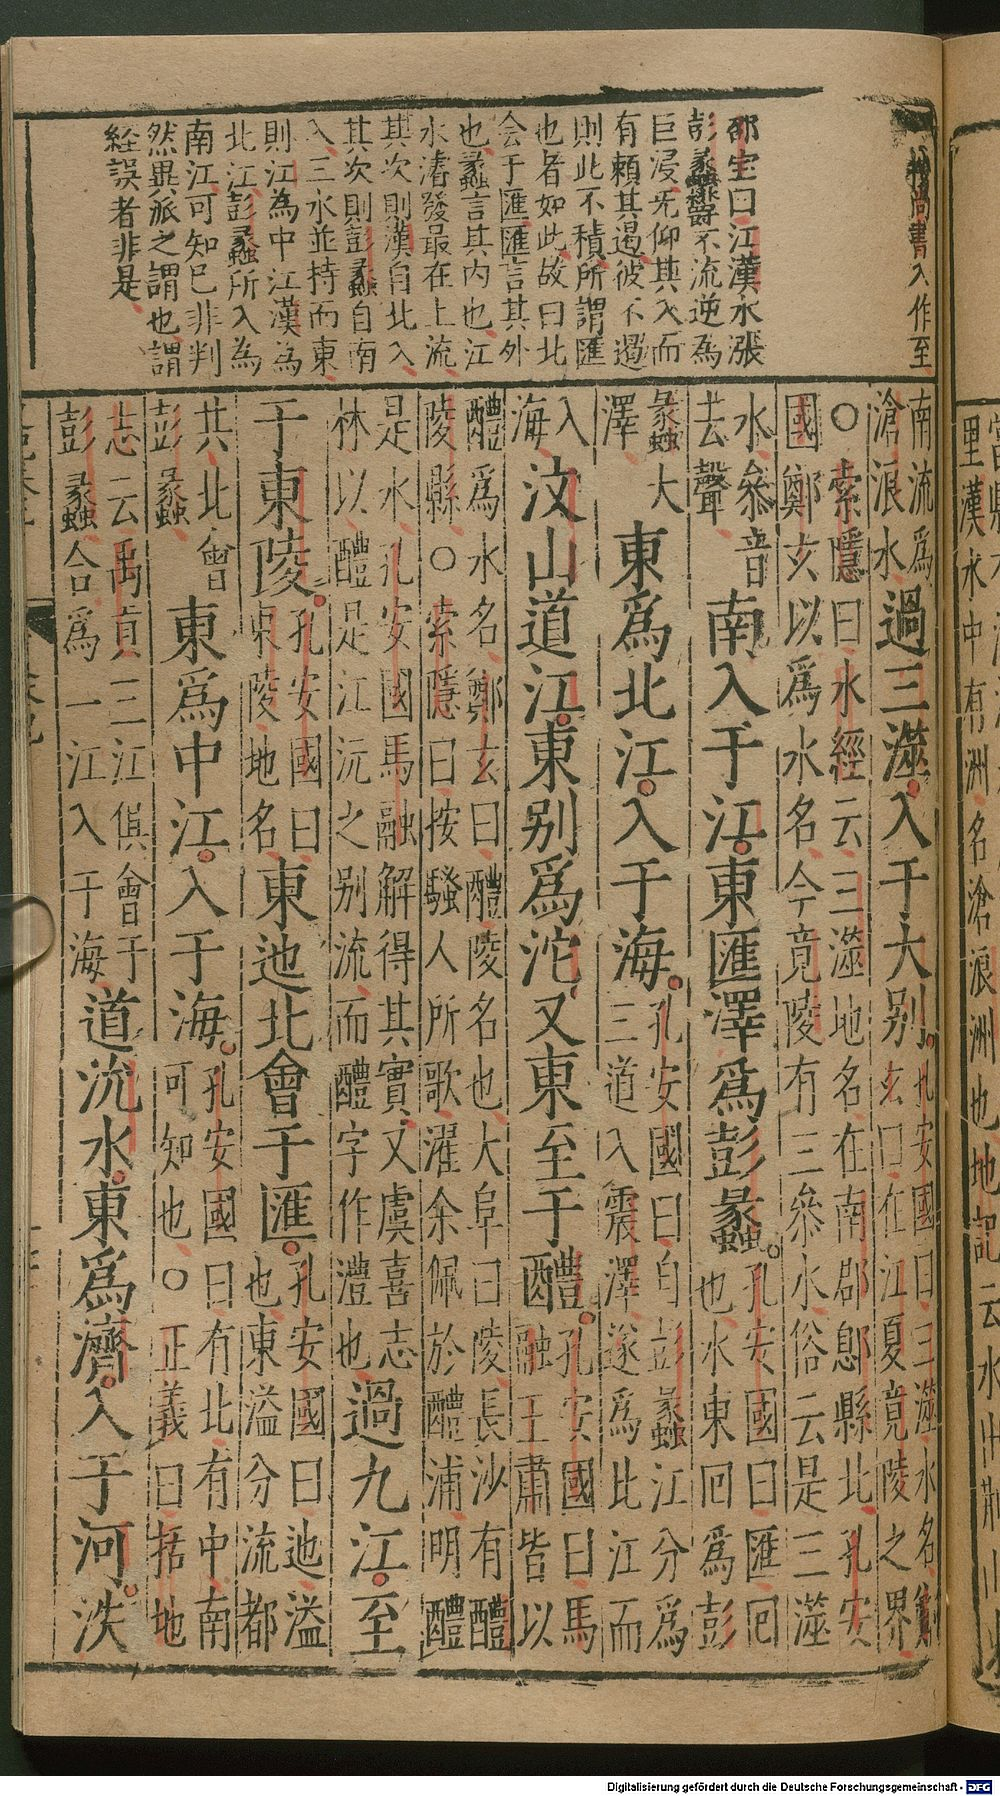 尚書入作至
邵宝曰江漢水漲
彭蠡欝不流逆為
巨浸旡仰其入而
有賴其遏彼不遏
則此不積所謂匯
也者如此故曰北
会于匯匯言其外
也蠡言其内也江
水濬發最在上流
其次則漢自北入
其次則彭蠡自南
入三水並持而東
則江為中江漢為
北江彭蠡所入為
南江可知巳非判
然異派之謂也謂
経誤者非是
南流爲
滄浪水
過三澨入于大别
孔安國曰三澨水名鄭
玄曰在江夏竟陵之界
○索隱曰水經云三澨地名在南郡郎縣北孔安
國鄭玄以爲水名今竟陵有三參水俗云是三澨
水參音
去聲
南入于江東匯澤爲彭蠡
孔安國曰匯回
也水東回爲彭
蠡大
澤
東爲北江入于海
孔安國曰自彭蠡江分爲
三道入震澤遂爲北江而
入
海
汶山道江東别爲沱又東至于醴
孔安國曰馬
融王肅皆以
醴爲水名鄭玄曰醴陵名也大阜曰陵長沙有醴
陵縣○索隱曰按騷人所歌濯余佩於醴浦明醴
是水孔安國馬融解得其實又虞喜志
林以醴是江沅之别流而醴字作澧也
過九江至
于東陵
孔安國曰
東陵地名
東迆北會于匯
孔安國曰迆溢
也東溢分流都
共北會
彭蠡
東爲中江入于海
孔安國曰有北有中南
可知也○正義曰括地
志云禹貢三江俱會于
彭蠡合爲一江入于海
道沇水東爲濟入于河泆
Digitalisierung gefördert durch die Deutsche Forschungsgemeinschaft - DFG